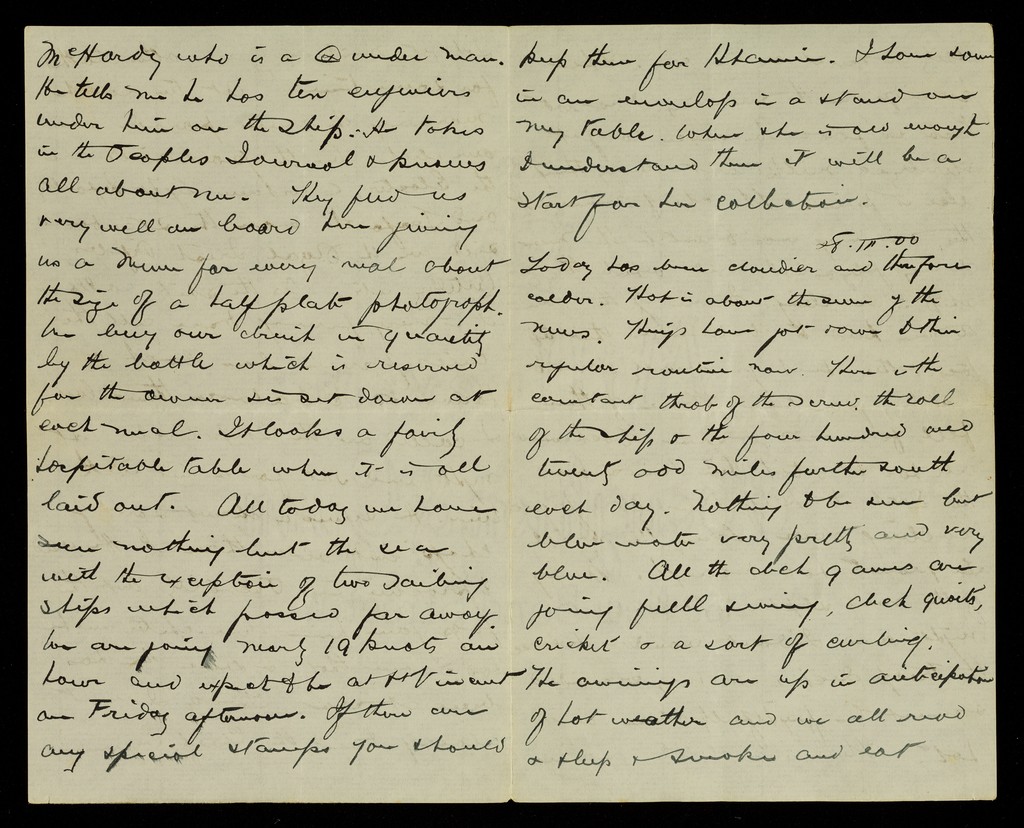 McHardy who is a Dundee man.
He tells me he has ten engineers
under him on the ship. He takes
in the Peoples Journal & knows
all about me. They feed us
very well on board here giving
us a menu for every meal about
the size of a half plate photograph.
We buy our drink in quantity
by the bottle which is reserved
for the owner & is set down at
each meal. It looks a fairly
hospitable table when it is all
laid out. All today we have
seen nothing but the sea
with the exception of two sailing
ships which passed far away.
We are going nearly 19 knots an
hour and expect to be at St Vincent
on Friday afternoon. If there are
any special stamps you should
keep them for I have some
in an envelope in a stand on
my table. When she is old enough
to understand them it will be a
start for her collection.
28.III.00
Today has been cloudier and therefore
colder. That is about the sum of the
news. Things have got down to their
regular routine now. There is the
constant throb of the screw, the roll
of the ship & the four hundred and
twenty odd miles further south
each day. Nothing to be seen but
blue water very pretty and very
blue. All the deck games are
going full swing, deck quoits,
cricket & a sort of curling.
The awnings are up in anticipation
of hot weather and we all read
& sleep & smoke and eat